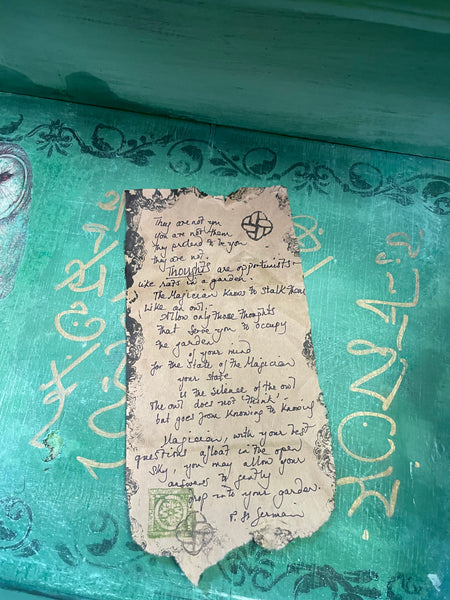 They are not you
you are not them
they pretend to be you
they are not.
Thoughts are opportunists -
like rats in a garden.
The Magician knows to stalk them
like an owl.
Allow only those thoughts
that serve you to occupy
the garden
of your mind
for the state of the Magician
your state
is the silence of the owl
The owl does not 'think' -
but goes from knowing to knowing
Magician, with your best
questions afloat in the open
sky, you may allow your
answers to gently
into your garden.
P. St German